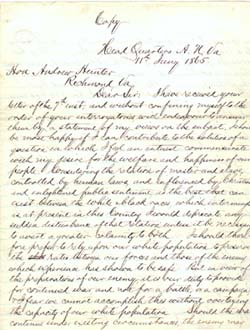 Copy
Head Quarters A. N. Va
11th Jany 1865
Hon Andrew Hunter
Richmond Va
Dear Sir: I have received your
letter of the 7th inst, and without confining myself to the
order of your interrogatories will endeavor to answer
them by a statement of my views on the subject. I shall
be most happy if I can contribute to the solution of a
question in which I feel an interest commensurate
with my desire for the welfare and happiness of our
people. Considering the relation of master and slave,
controlled by humane laws and influenced by
and enlightened public sentiment, as the best that can
exist between the white & black races which intermingle
as at present in this Country I would deprecate any
sudden disturbance of that relation unless it be necessary
to avert a greater calamity to both. I should there-
fore prefer to rely upon our white population to preserve
the ratio between our forces and those of the enemy
which experience has shown to be safe. But in view of
the preparations of our enemies it is our duty to provide
for continued war and not for a battle, or a campaign
& I fear we cannot accomplish this without overtaxing
the capacity of our white population. Should the war
continue under existing circumstances, the enemy may